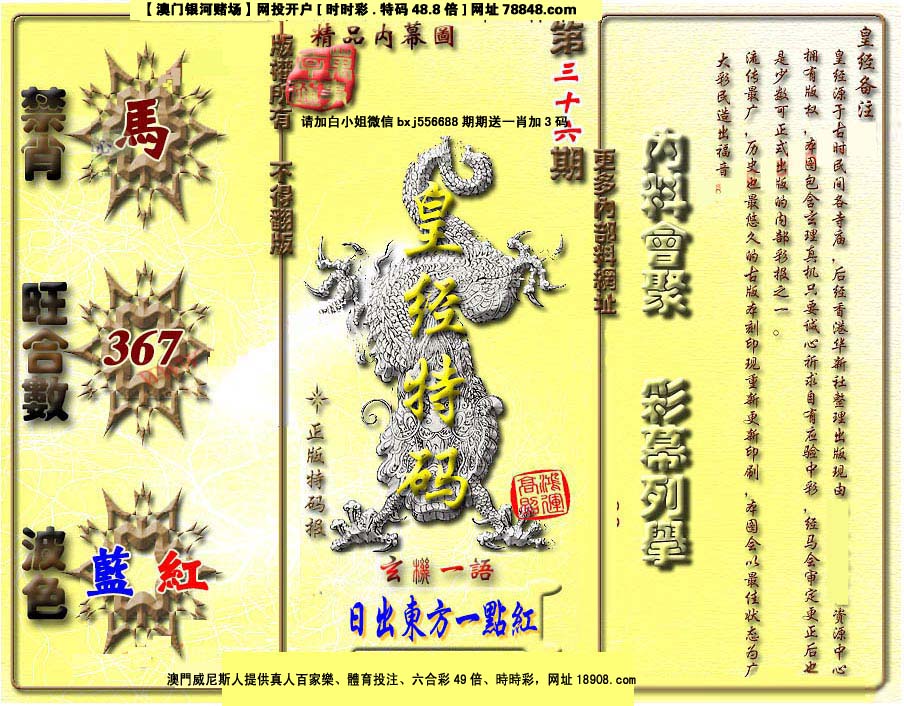 【澳门银河赌场】网投开户 [ 时时彩 . 特码 48.8 倍 ] 网址 78848.com
精品内幕圖
第三十六期
版權所有 不得翻版
请加白小姐微信 bxj556688 期期送一肖加 3 码
更多內部料網址
皇经特码
正版特码报
鴻運高照
玄機一語
日出東方一點紅
禁肖
馬
旺合數
367
波色
藍 紅
内料會聚
彩幕列舉
皇经备注
皇经源于古时民间各寺庙，后经香港华新社整理出版现由 資源中心
拥有版权，本图包含玄理真机只要诚心祈求自有应验中彩，经马会审定更正后也
是少数可正式出版的内部彩报之一。
流传最广，历史也最悠久的古版本刻印现重新更新印刷，本图会以最佳状态为广
大彩民造出福音。
澳門威尼斯人提供真人百家樂、體育投注、六合彩 49 倍、時時彩，网址 18908.com